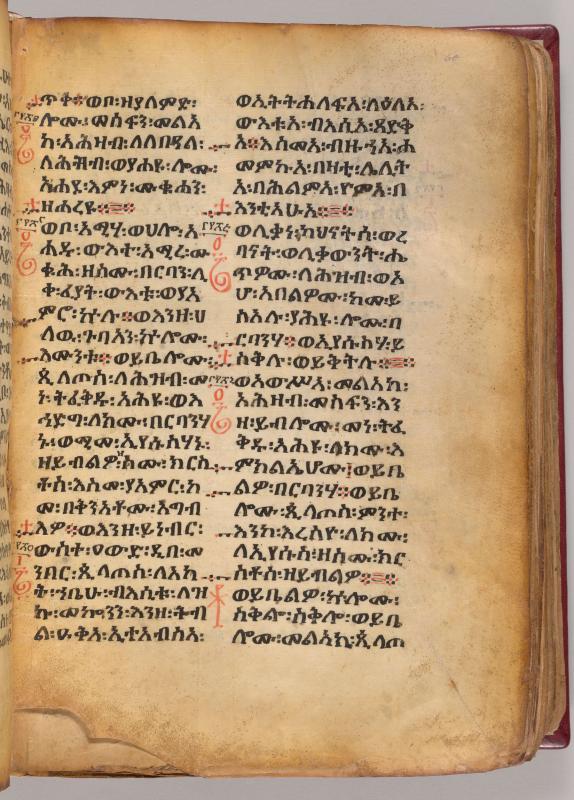 ጥቀ፡ወቦ፡ዘያለምድ፡
ሎሙ፡መስፍን፡መልአ
ከ፡አሕዛብ፡ለለበዓል፡
ለሕዝብ፡ወያሐዩ፡ሎሙ፡
አሐደ፡እምነ፡ሙቁሐን፡
ዘሐረዩ።
ወቦ፡አሜሃ፡ወሀሎ፡አ
ሐዱ፡ውእተ፡አሚረ፡ሙ
ቁሕ፡ዘስሙ፡በርባን፡ሊ
ቀ፡ፈያት፡ውእቱ፡ወያአ
ምሮ፡ኵሉ።ወእንዘ፡ሀ
ለዉ፡ጉባአን፡ኵሎሙ፡
እሙንቱ።ወይቤሎሙ፡
ጲላጦስ፡ለሕዝብ፡መ
ኑ፡ትፈቅዱ፡አሕዩ፡ወእ
ኅድግ፡ለክሙ፡በርባንሃ
ኑ፡ወሚመ፡ኢየሱስሃኑ፡
ዘይብልዎ፡ስሙ፡ክርስ
ቶስ፡እስመ፡ያአምር፡ከ
መ፡በቅንአቶሙ፡አግብ
እዎ።ወእንዘ፡ይነብር፡
ውስተ፡ዐውድ፡ዲበ፡መ
ንበር፡ጲላጦስ፡ለአከ
ት፡ኀቤሁ፡ብእሲቱ፡ለዝ
ኩ፡መኰንን፡እንዘ፡ትብ
ል፡ዑቅአ፡ኢተአብስአ፡
ወኢትትሐለፍአ፡ለዕለአ፡
ውእቱአ፡ብእሲአ፡ጻድቅ
አ።እስመአ፡ብዙኃአ፡ሐ
መምኩአ፡በዛቲ፡ሌሊት
አ፡በሕልምአ፡ዮምአ፡በ
እንቲአሁአ።
ወሊቃነ፡ካህናትሰ፡ወረ
ባናት፡ወሊቃውንት፡ሔ
ጥዎሙ፡ለሕዝብ፡ወአ
ሆ፡አበልዎሙ፡ከመ፡ይ
ስአሉ፡ያሕዩ፡ሎሙ፡በ
ርባንሃ።ወኢየሱስሃ፡ይ
ስቅሉ፡ወይቅትሉ።
ወአውሥአ፡መልአከ፡
አሕዛብ፡መስፍን፡እን
ዘ፡ይብሎሙ፡መነ፡ትፈ
ቅዱ፡አሕዩ፡ለክሙ፡እ
ምክልኤሆሙ፡ወይቤ
ልዎ፡በርባንሃ።ወይቤ
ሎሙ፡ጲላጦስ፡ምንተ፡
እንከ፡እረስዮ፡ለክሙ፡
ለኢየሱስ፡ዘስሙ፡ክር
ስቶስ፡ዘይብልዎ።
ወይቤልዎ፡ኵሎሙ፡
ስቅሎ፡ስቅሎ፡ወይቤ
ሎሙ፡መልአኪ፡ጲላጦ